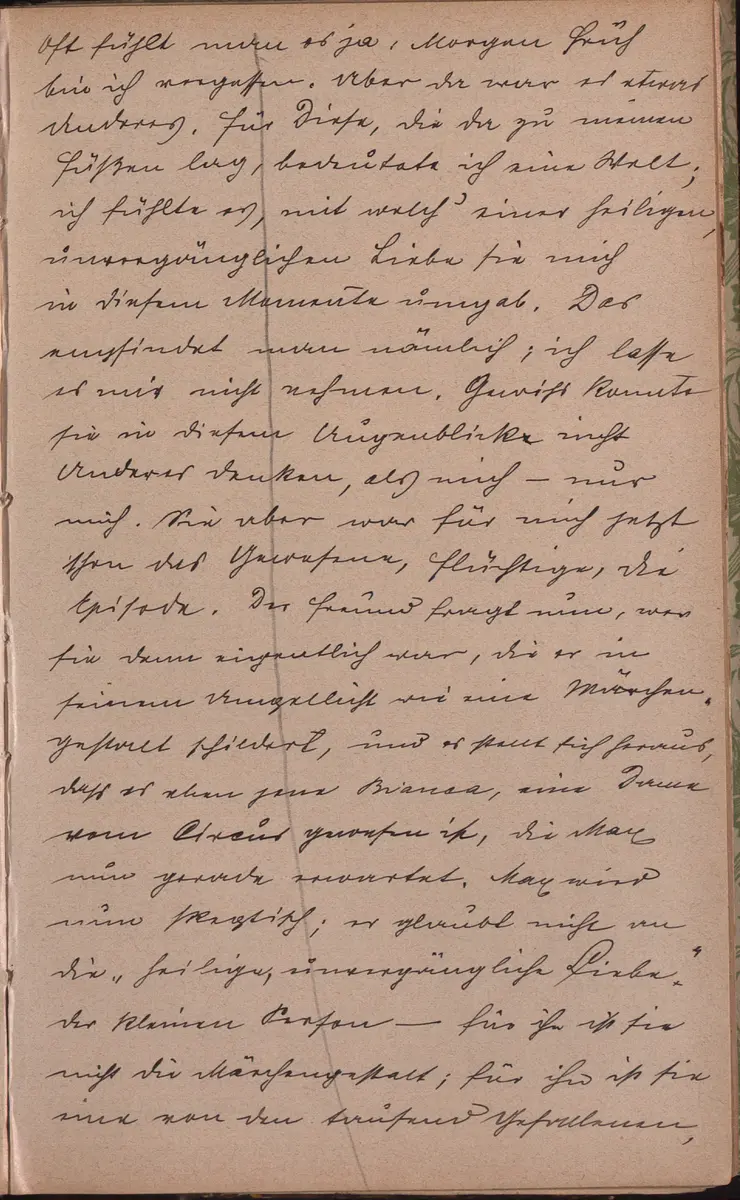 Oft fühlt man es ja, Morgen früh
bin ich vergessen. Aber da war es etwas
Anderes. Für Diese, die da zu meinen
Füßen lag, bedeutete ich eine Welt;
ich fühlte es, mit welch' einer heiligen,
unvergänglichen Liebe sie mich
in diesem Momente umgab. Das
empfindet man nämlich; ich lasse
es mir nicht nehmen. Gewiß konnte
sie in diesem Augenblicke nicht
Anderes denken, als mich – nur
mich. Sie aber war für mich jetzt
schon das Gewesene, Flüchtige, die
Episode. Der Freund fragt nun, wer
sie denn eigentlich war, die er in
seinem Ampellicht wie eine Märchen-
gestalt schildert, und es stellt sich heraus,
dass es eben jene Bianca, eine Dame
vom Circus gewesen ist, die Max
nun gerade erwartet. Max wird
nun skeptisch; er glaubt nicht an
die „heilige, unvergängliche Liebe"
der kleinen Person – für ihn ist sie
nicht die Märchengestalt; für ihn ist sie
eine von den tausend Gefallenen,